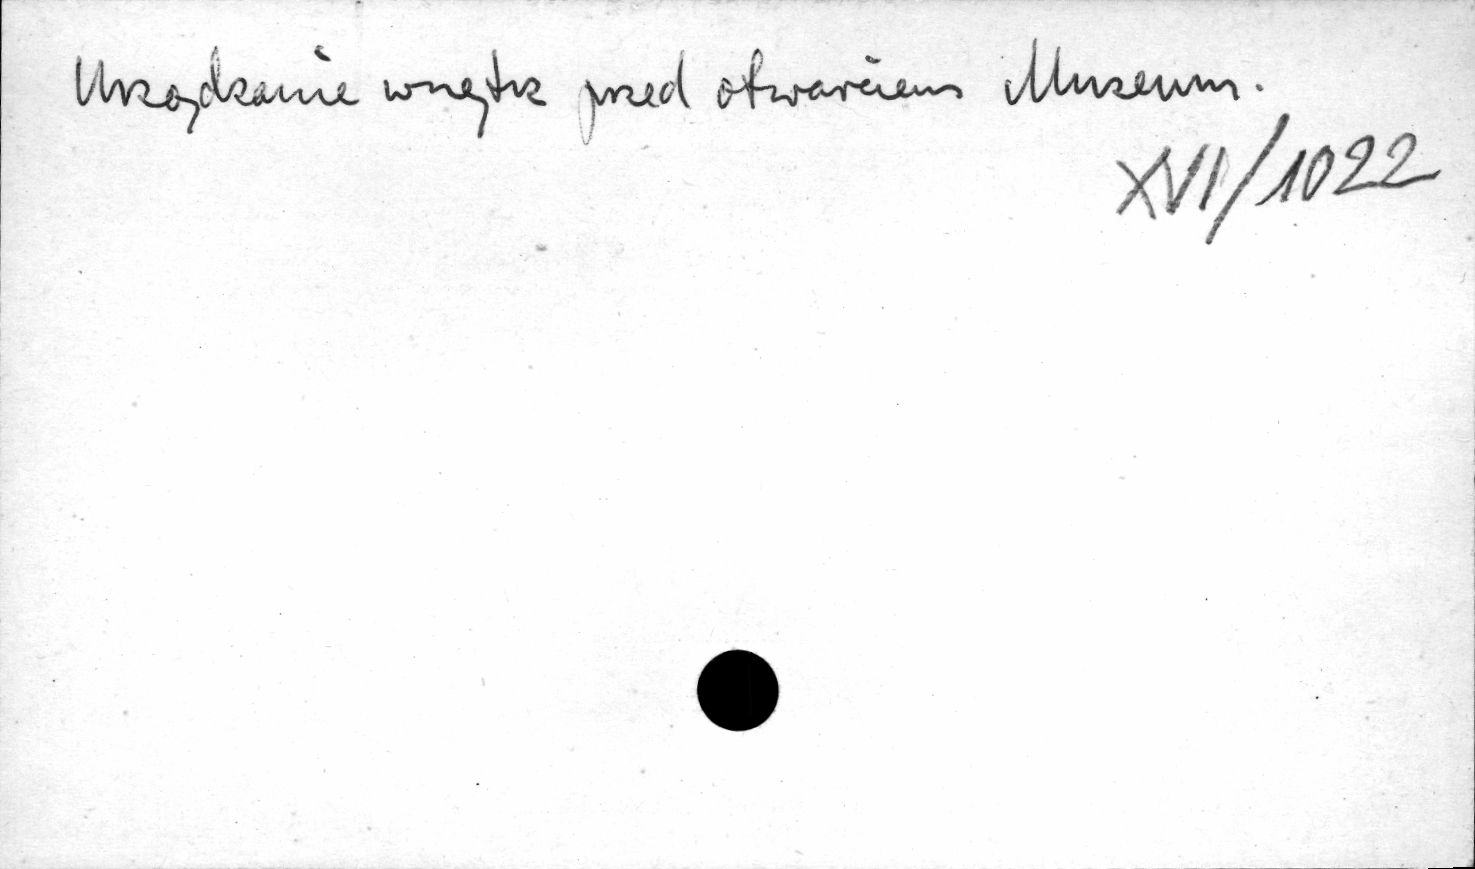 Urządzanie wnętrz przed otwarciem Museum.
XVI/1022